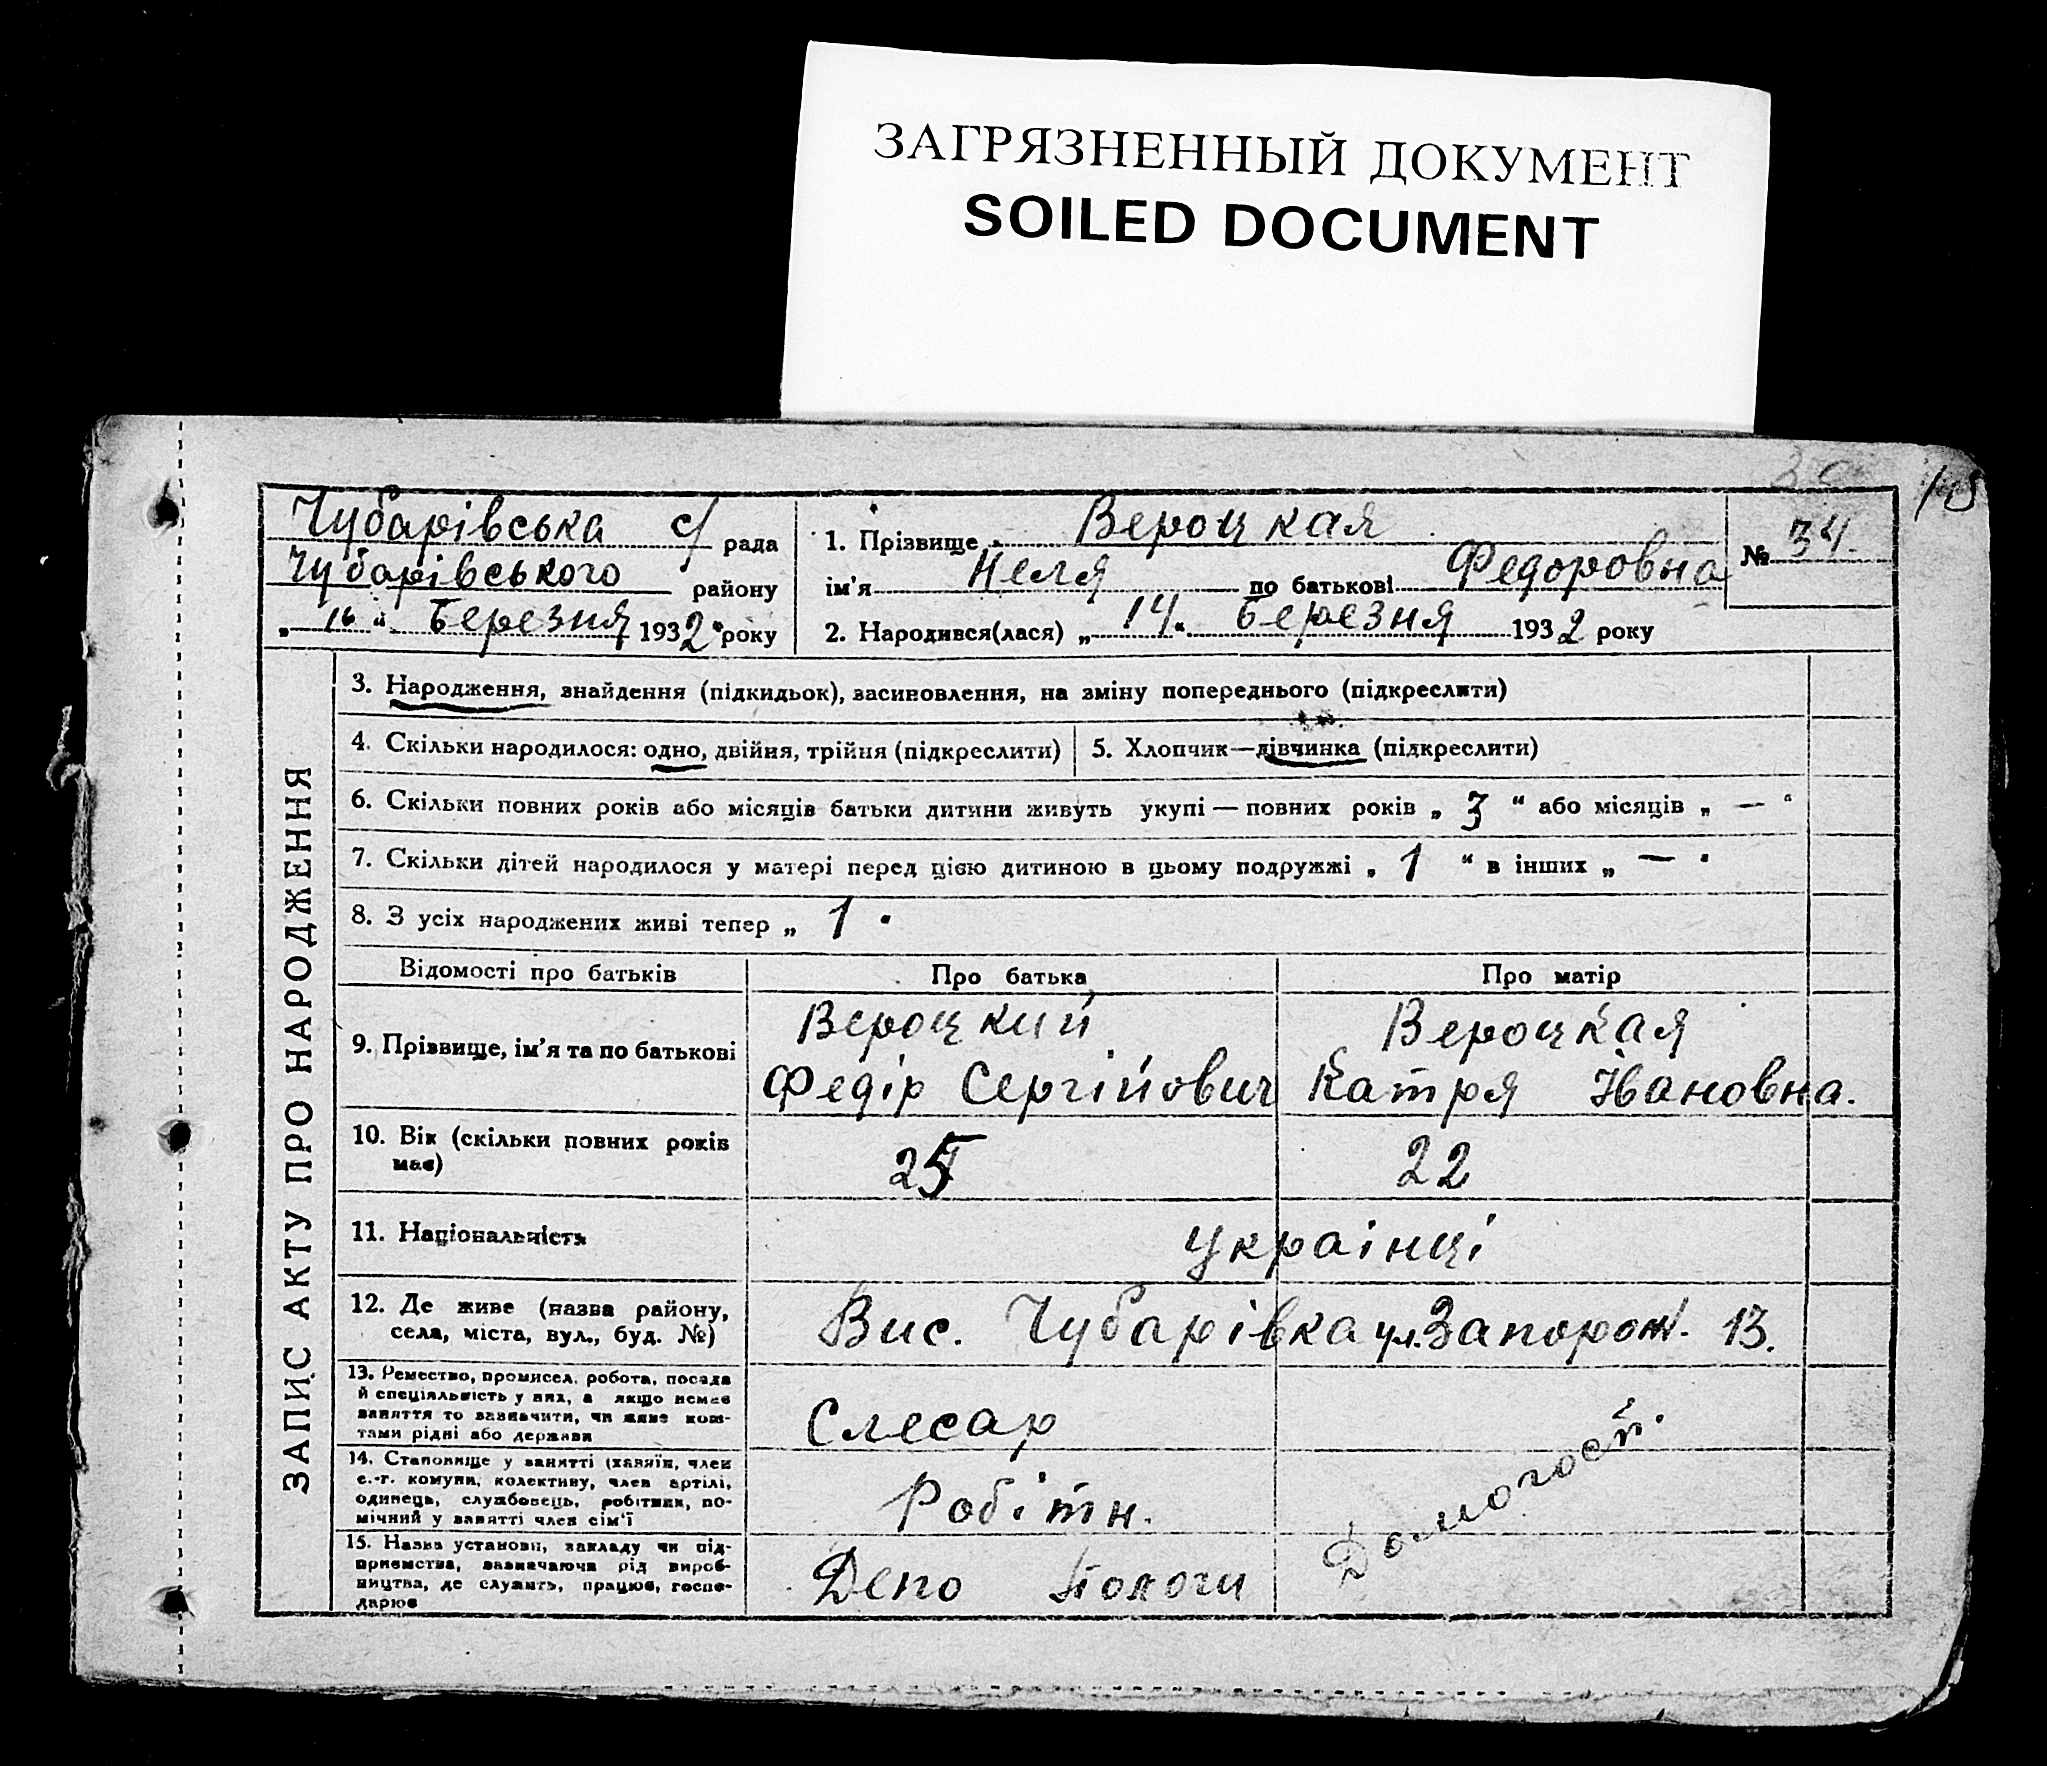 ЗАГРЯЗНЕННЫЙ ДОКУМЕНТ
SOILED DOCUMENT
Чубарівська с/ рада
Чубарівського району
„ 16 " Березня 1932 року
1. Прізвище Вероцкая
ім'я Неля по батькові Федоровна
2. Народився(лася) „ 14 " Березня 1932 року
№ 34.
ЗАПИС АКТУ ПРО НАРОДЖЕННЯ
3. Народження, знайдення (підкидьок), засиновлення, на зміну попереднього (підкреслити)
4. Скільки народилося: одно, двійня, трійня (підкреслити)
5. Хлопчик—дівчинка (підкреслити)
6. Скільки повних років або місяців батьки дитини живуть укупі — повних років „ 3 " або місяців „ — "
7. Скільки дітей народилося у матері перед цією дитиною в цьому подружжі „ 1 " в інших „ — "
8. З усіх народжених живі тепер „ 1 "
Відомості про батьків
Про батька
Про матір
9. Прізвище, ім'я та по батькові
Вероцкий
Федір Сергійович
Вероцкая
Катря Івановна.
10. Вік (скільки повних років
має)
25
22
11. Національність
Українці
12. Де живе (назва району,
села, міста, вул., буд. №)
Вис. Чубарівка ул. Запорож. 13.
13. Ремество, промисел, робота, посада
й спеціяльність у них, а якщо немає
заняття то зазначити, чи живе кош-
тами рідні або держави
Слесар
14. Становище у занятті (хазяїн, член
с.-г. комуни, колективу, член артілі,
одинець, службовець, робітник, по-
мічний у занятті член сім'ї
Робітн.
15. Назва установи, закладу чи під-
приємства, зазначаючи рід вироб-
ництва, де служить, працює, госпо-
дарює
Депо Пологи
Домогосп.